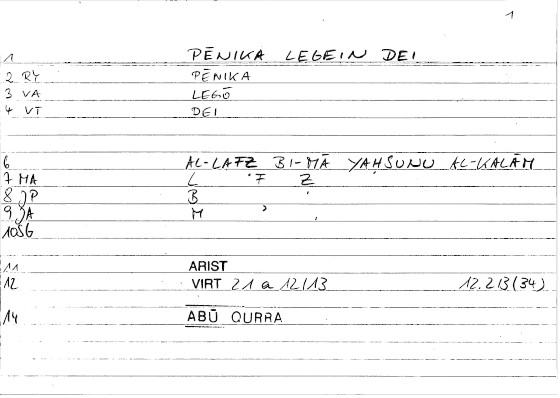 1
1 PĒNIKA LEGEIN DEI
2 RY PĒNIKA
3 VA LEGŌ
4 VT DEI
6 AL-LAFẒ BI-MĀ YAḤSUNU AL-KALĀM
7 MA L F Ẓ
8 JP B
9 JA M
10 SG
11 ARIST
12 VIRT 21 a 12/13 12.213(34)
14 ABŪ QURRA